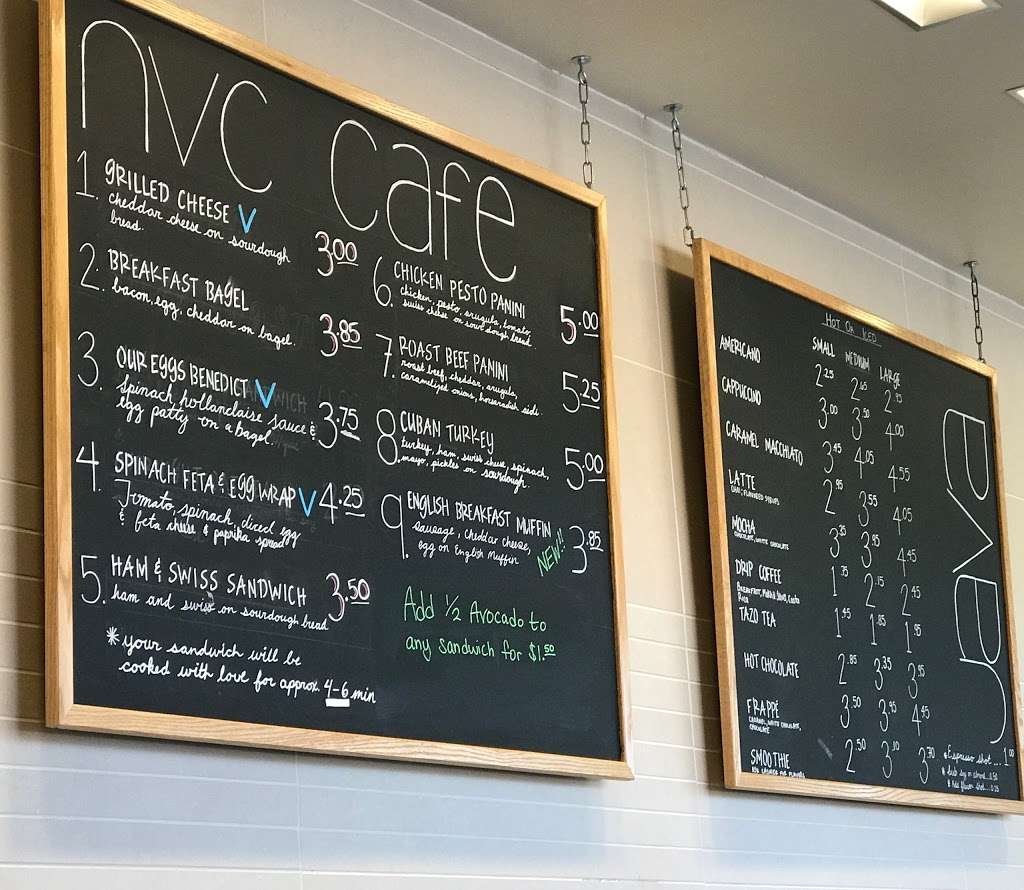 nvc cafe
1. GRILLED CHEESE V
cheddar cheese on sourdough
bread. 3.00
2. BREAKFAST BAGEL
bacon, egg, cheddar on bagel. 3.85
3. OUR EGGS BENEDICT V
spinach, hollandaise sauce & 3.75
egg patty on a bagel.
4. SPINACH FETA & EGG WRAP V 4.25
Tomato, spinach, diced egg
& feta cheese & paprika spread
5. HAM & SWISS SANDWICH
ham and swiss on sourdough bread 3.50
*your sandwich will be
cooked with love for approx. 4-6 min
6. CHICKEN PESTO PANINI
chicken, pesto, arugula, tomato,
swiss cheese on sourdough bread. 5.00
7. ROAST BEEF PANINI
roast beef, cheddar, arugula,
caramelized onions, horseradish aioli. 5.25
8. CUBAN TURKEY
turkey, ham, swiss cheese, spinach,
mayo, pickles on sourdough. 5.00
9. ENGLISH BREAKFAST MUFFIN
Sausage, cheddar cheese,
egg on English Muffin NEW!! 3.85
Add 1/2 Avocado to
any sandwich for $1.50
HOT OR ICED
SMALL MEDIUM LARGE
AMERICANO 2.25 2.65 2.95
CAPPUCCINO 3.00 3.50 4.00
CARAMEL MACCHIATO 3.45 4.05 4.55
LATTE 2.95 3.55 4.05
CHAI, FLAVORED SYRUPS
MOCHA 3.35 3.95 4.45
CHOCOLATE, WHITE CHOCOLATE
DRIP COFFEE 1.75 2.15 2.45
Breakfast, Costa
Rica
TAZO TEA 1.45 1.85 1.95
HOT CHOCOLATE 2.85 3.35 3.85
FRAPPÉ 3.50 3.95 4.45
CARAMEL, WHITE CHOCOLATE,
CHOCOLATE
SMOOTHIE 2.50 3.10 3.70
ASK CASHIER FOR FLAVORS
Espresso shot....1.00